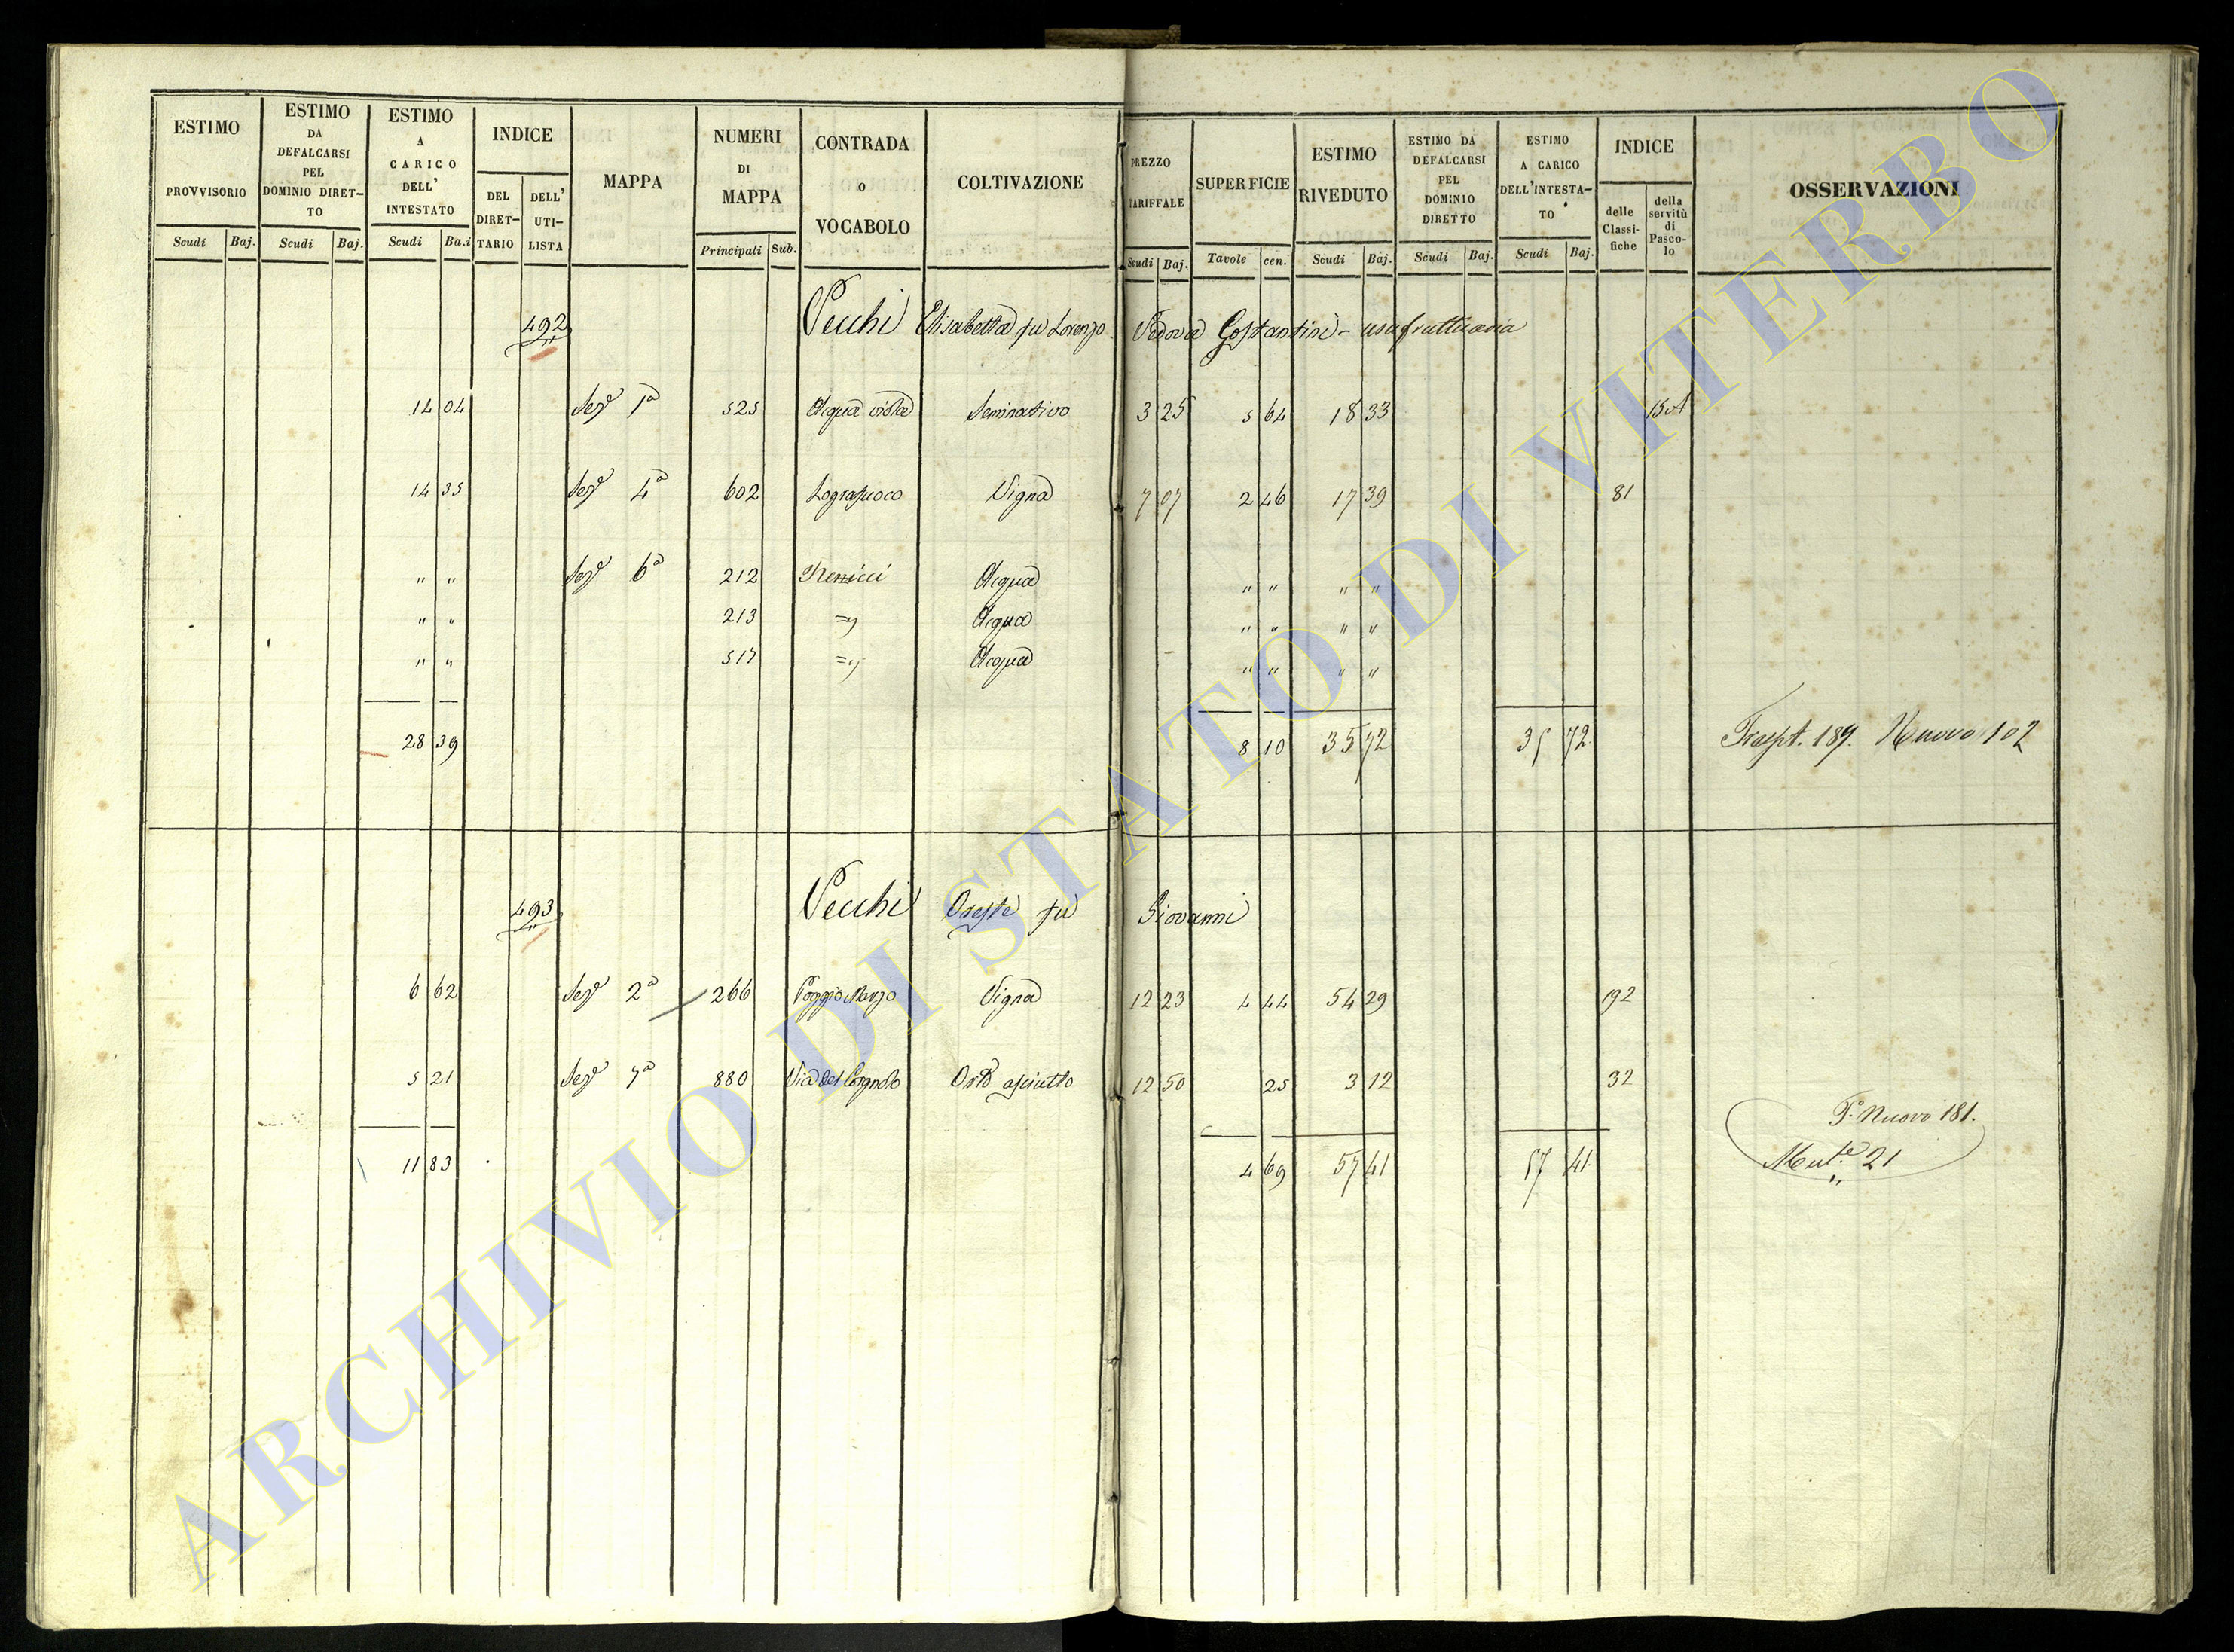 ESTIMO PROVVISORIO Scudi Baj.
ESTIMO DA DEFALCARSI PEL DOMINIO DIRET- TO Scudi Baj.
ESTIMO A CARICO DELL' INTESTATO Scudi Ba.i
INDICE DEL DIRET- TARIO DELL' UTI- LISTA
MAPPA
NUMERI DI MAPPA Principali Sub.
CONTRADA o VOCABOLO
COLTIVAZIONE
PREZZO TARIFFALE Scudi Baj.
SUPERFICIE Tavole cen.
ESTIMO RIVEDUTO Scudi Baj.
ESTIMO DA DEFALCARSI PEL DOMINIO DIRETTO Scudi Baj.
ESTIMO A CARICO DELL'INTESTA- TO Scudi Baj.
INDICE delle Classi- fiche della servitù di Pasco- lo
OSSERVAZIONI
492 Vecchi Elisabetta fu Lorenzo Vedova Costantini - usufruttuaria
14 04 Sez.e 1a 525 Acqua viola Seminativo 3 25 5 64 18 33 15 A
14 35 Sez.e 4a 602 Vigna 7 07 2 46 17 39 81
" " Sez.e 6a 212 Acqua " " " "
" " 213 = Acqua " " " "
" " 517 = Acqua " " " "
28 39 8 10 35 72 35 72 Traspt. 189. Nuovo 102
493 Vecchi Oreste fu Giovanni
6 62 Sez.e 2a 266 Poggio Marzo Vigna 12 23 4 44 54 29 192
5 21 Sez.e 7a 880 Via del Corgnolo Orto asciutto 12 50 25 3 12 32
T.o Nuovo 181.
11 83 4 69 57 41 57 41 Mut.e 21
ARCHIVIO DI STATO DI VITERBO